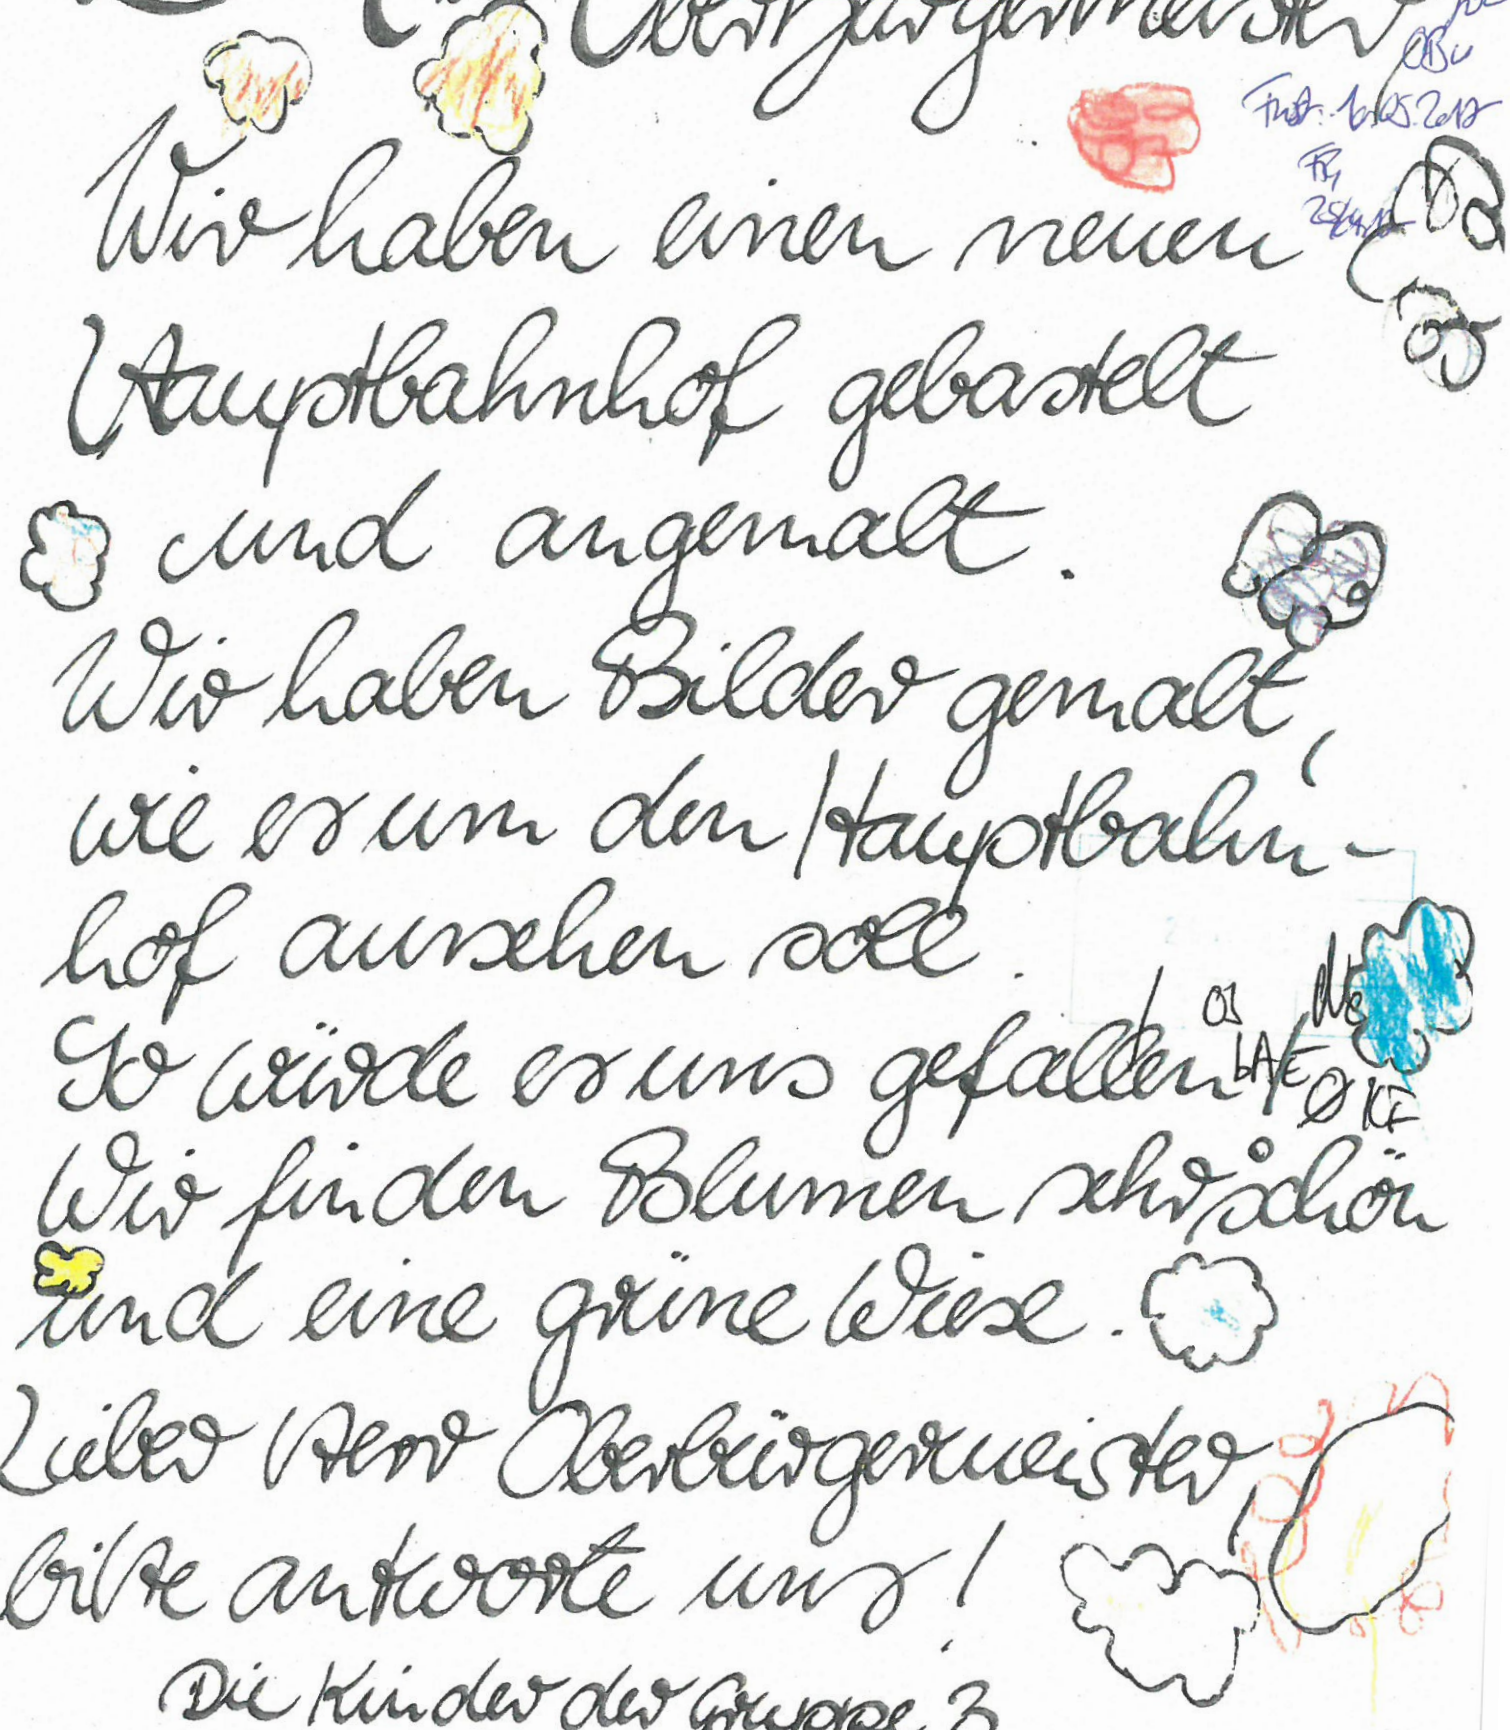 Oberbürgermeister
OBü
Frist: 16.05.2017
Wir haben einen neuen
Hauptbahnhof gebastelt
und angemalt.
Wir haben Bilder gemalt,
wie es um den Hauptbahn-
hof aussehen soll.
So würde es uns gefallen!
Wir finden Blumen sehr schön
und eine grüne Wiese.
Lieber Herr Oberbürgermeister,
bitte antworte uns!
Die Kinder der Gruppe 3